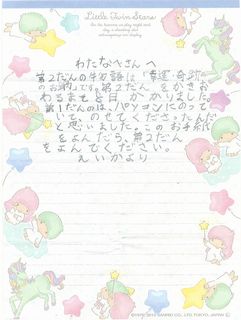 Little Twin Stars
わたなべさんへ
第2だんの牛勿語は「幸運・奇跡
のお守り」です。第2だん をかきお
わるまで七日かかりました。
第1だんのは、パソコンにのって
いて、のせてくださったんだ
と思いました。このお手紙
をよんだら、第2だん
をよんでください。
えいかより
SANRIO CO., LTD. TOKYO, JAPAN